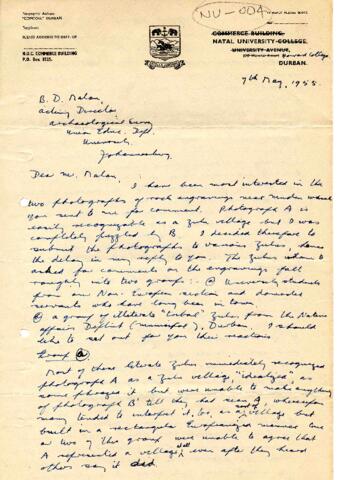 NU-004
Telegraphic Address
"COMCOL" DURBAN.
Telephone
PLEASE ADDRESS REPLY
N.U.C. COMMERCE BUILDING
P.O. BOX 1525.
COMMERCE BUILDING,
NATAL UNIVERSITY COLLEGE,
UNIVERSITY AVENUE,
Howard College
DURBAN.
7th May, 1955
B. D. Malan,
Acting Director,
Archaeological Survey
Union Educ. Dept.
University
Johannesburg
Dear Mr. Malan,
I have been most interested in the
two photographs of rock engravings near Muden which
you sent to me for comment. Photograph A is
easily recognizable as a Zulu village but I was
completely puzzled by B. I decided therefore to
submit the photographs to various Zulus, hence
the delay in my reply to you. The Zulus whom I
asked for comments on the engravings fall
roughly into two groups: - University students
from our Non-European section and domestic
servants who have long been in town
a group of illiterate "tribal" Zulus from the Native
Affairs Deptmt, Durban. I should
like to set out for you their reactions
Group
Most of these literate Zulus immediately recognized
photograph A as a Zulu village, "idealized" as
some phrased it but were unable to make anything
of photograph B till they had seen A, whereupon
many tended to interpret it, too, as a sort of village but
built in a rectangular Europeanized manner. One
or two of this group were unable to agree that
A represented a village at all, even after they heard
others say it did.